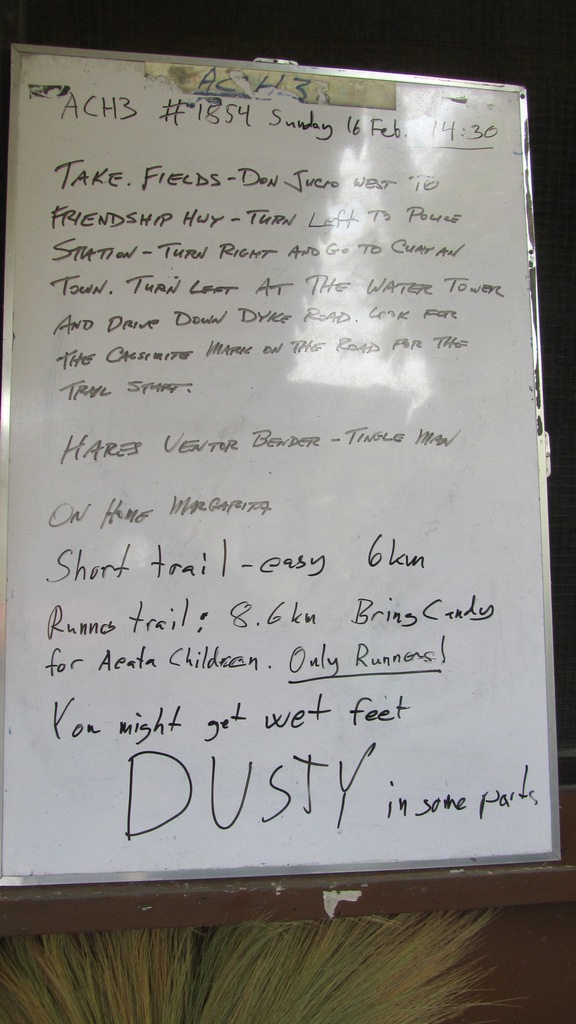 ACH3
ACH3 #1854 Sunday 16 Feb. 14:30
TAKE. FIELDS - DON JUCIO WEST TO
FRIENDSHIP HWY - TURN Left TO POLICE
STATION - TURN RIGHT AND GO TO CUAYAN
TOWN. TURN LEFT AT THE WATER TOWER
AND DRIVE DOWN DYKE ROAD. LOOK FOR
THE MARK ON THE ROAD FOR THE
TRAIL START.
HARES VENTOR BENDER - TINGLE MAN
ON HOME MARGARITA
Short trail - easy 6km
Runners trail: 8.6km Bring Candy
for Aeata Children. Only Runners!
You might get wet feet
DUSTY in some parts